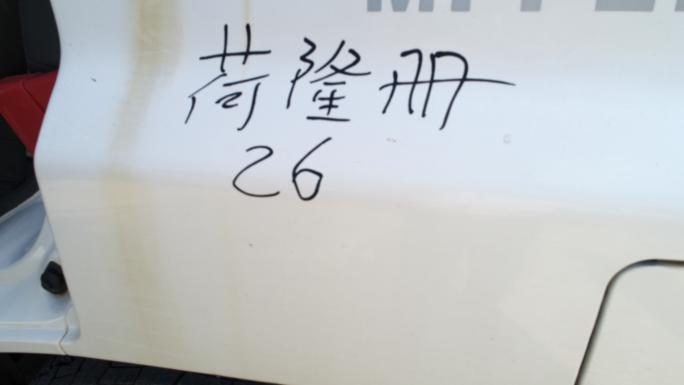 荷隆册
26